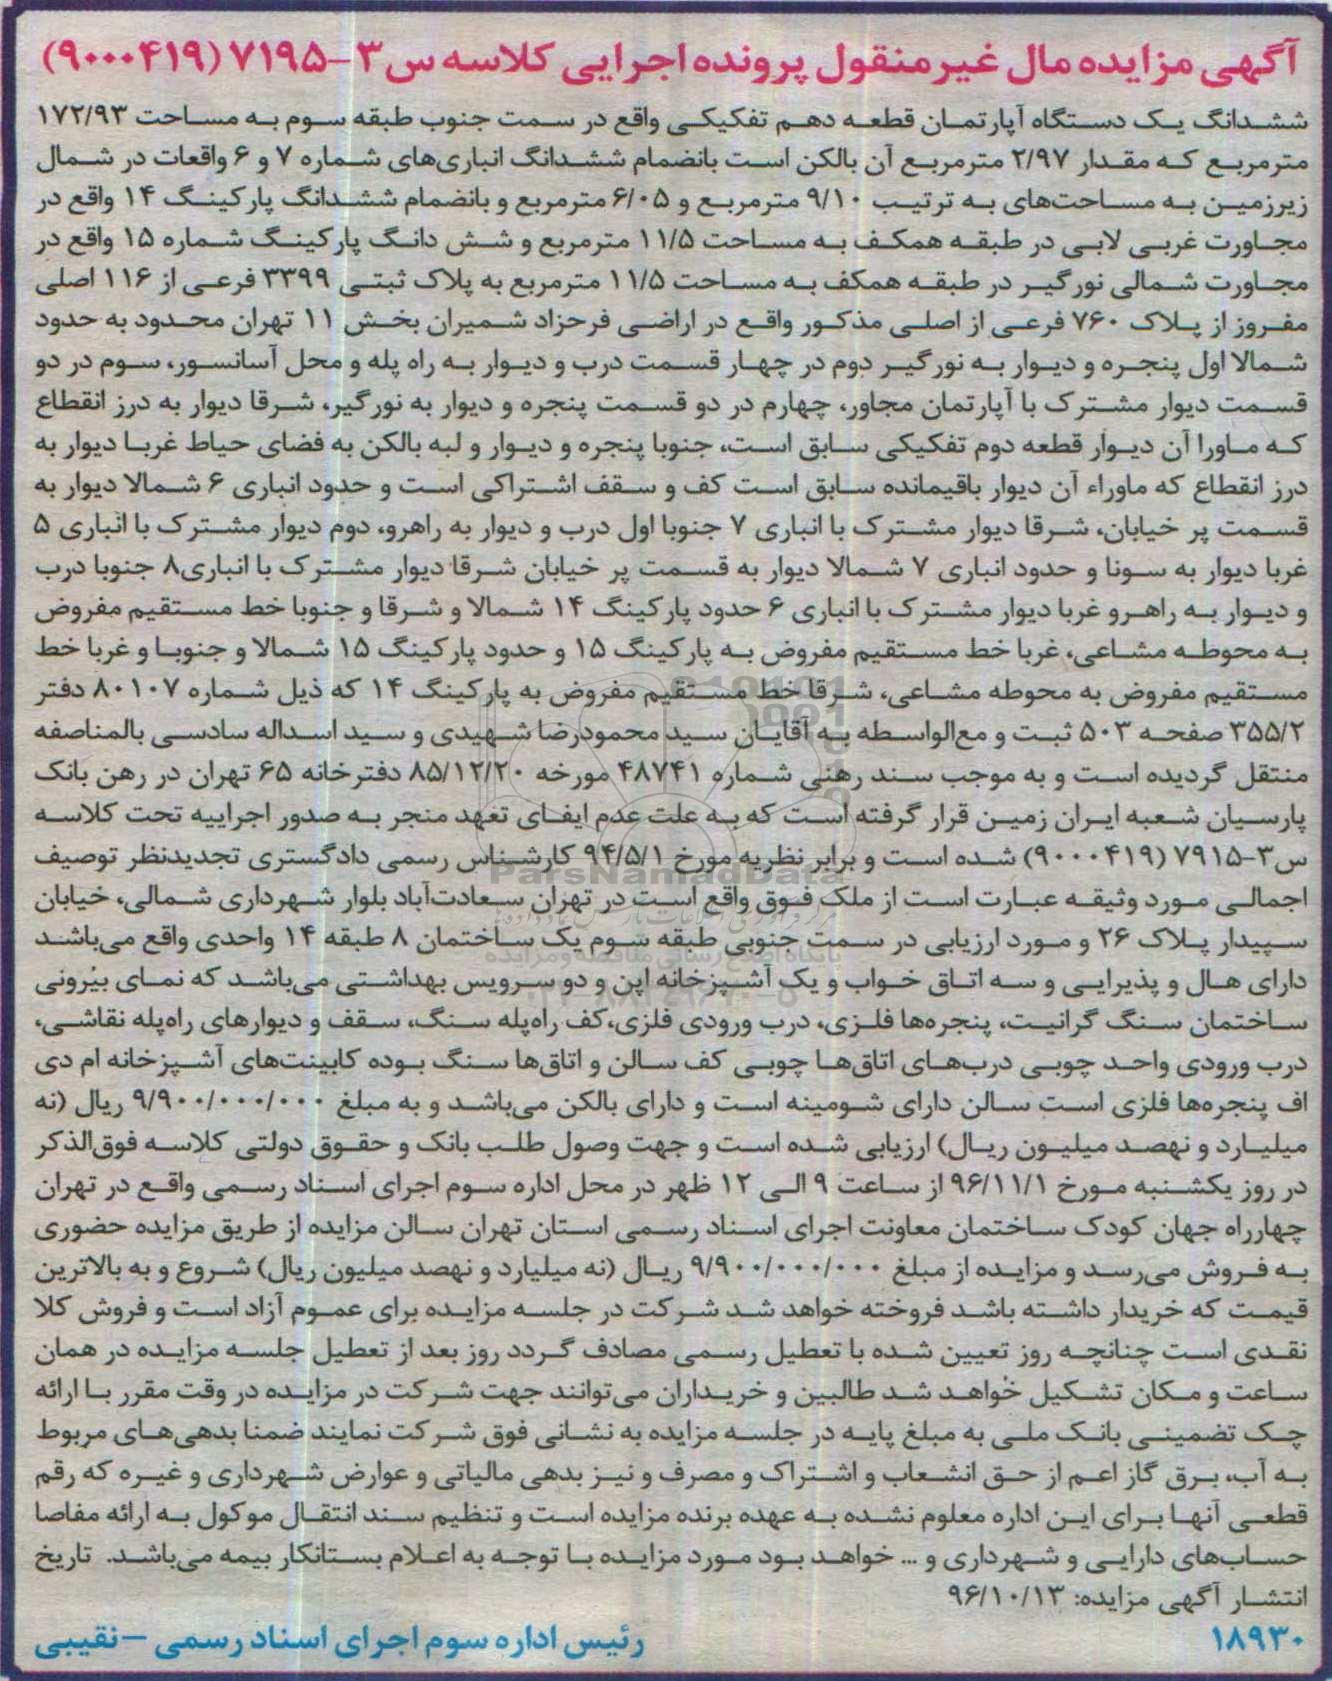 آگهی مزایده مال غیرمنقول پرونده اجرایی کلاسه س۳-۷۱۹۵ (۹۰۰۰۴۱۹)
ششدانگ یک دستگاه آپارتمان قطعه دهم تفکیکی واقع در سمت جنوب طبقه سوم به مساحت ۱۷۲/۹۳
مترمربع که مقدار ۲/۹۷ مترمربع آن بالکن است بانضمام ششدانگ انباری‌های شماره ۷ و ۶ واقعات در شمال
زیرزمین به مساحت‌های به ترتیب ۹/۱۰ مترمربع و ۶/۰۵ مترمربع و بانضمام ششدانگ پارکینگ ۱۴ واقع در
مجاورت غربی لابی در طبقه همکف به مساحت ۱۱/۵ مترمربع و شش دانگ پارکینگ شماره ۱۵ واقع در
مجاورت شمالی نورگیر در طبقه همکف به مساحت ۱۱/۵ مترمربع به پلاک ثبتی ۳۳۹۹ فرعی از ۱۱۶ اصلی
مفروز از پلاک ۷۶۰ فرعی از اصلی مذکور واقع در اراضی فرحزاد شمیران بخش ۱۱ تهران محدود به حدود
شمالا اول پنجره و دیوار به نورگیر دوم در چهار قسمت درب و دیوار به راه پله و محل آسانسور، سوم در دو
قسمت دیوار مشترک با آپارتمان مجاور، چهارم در دو قسمت پنجره و دیوار به نورگیر، شرقا دیوار به درز انقطاع
که ماورا آن دیوار قطعه دوم تفکیکی سابق است، جنوبا پنجره و دیوار و لبه بالکن به فضای حیاط غربا دیوار به
درز انقطاع که ماوراء آن دیوار باقیمانده سابق است کف و سقف اشتراکی است و حدود انباری ۶ شمالا دیوار به
قسمت پر خیابان، شرقا دیوار مشترک با انباری ۷ جنوبا اول درب و دیوار به راهرو، دوم دیوار مشترک با انباری ۵
غربا دیوار به سونا و حدود انباری ۷ شمالا دیوار به قسمت پر خیابان شرقا دیوار مشترک با انباری۸ جنوبا درب
و دیوار به راهرو غربا دیوار مشترک با انباری ۶ حدود پارکینگ ۱۴ شمالا و شرقا و جنوبا خط مستقیم مفروض
به محوطه مشاعی، غربا خط مستقیم مفروض به پارکینگ ۱۵ و حدود پارکینگ ۱۵ شمالا و جنوبا و غربا خط
مستقیم مفروض به محوطه مشاعی، شرقا خط مستقیم مفروض به پارکینگ ۱۴ که ذیل شماره ۸۰۱۰۷ دفتر
۳۵۵/۲ صفحه ۵۰۳ ثبت و مع‌الواسطه به آقایان سید محمودرضا شهیدی و سید اسداله سادسی بالمناصفه
منتقل گردیده است و به موجب سند رهنی شماره ۴۸۷۴۱ مورخه ۸۵/۱۲/۲۰ دفترخانه ۶۵ تهران در رهن بانک
پارسیان شعبه ایران زمین قرار گرفته است که به علت عدم ایفای تعهد منجر به صدور اجراییه تحت کلاسه
س۳-۷۹۱۵ (۹۰۰۰۴۱۹) شده است و برابر نظریه مورخ ۹۴/۵/۱ کارشناس رسمی دادگستری تجدیدنظر توصیف
اجمالی مورد وثیقه عبارت است از ملک فوق واقع است در تهران سعادت‌آباد بلوار شهرداری شمالی، خیابان
سپیدار پلاک ۲۶ و مورد ارزیابی در سمت جنوبی طبقه سوم یک ساختمان ۸ طبقه ۱۴ واحدی واقع می‌باشد
دارای هال و پذیرایی و سه اتاق خواب و یک آشپزخانه اپن و دو سرویس بهداشتی می‌باشد که نمای بیرونی
ساختمان سنگ گرانیت، پنجره‌ها فلزی، درب ورودی فلزی،کف راه‌پله سنگ، سقف و دیوارهای راه‌پله نقاشی،
درب ورودی واحد چوبی درب‌های اتاق‌ها چوبی کف سالن و اتاق‌ها سنگ بوده کابینت‌های آشپزخانه ام دی
اف پنجره‌ها فلزی است سالن دارای شومینه است و دارای بالکن می‌باشد و به مبلغ ۹/۹۰۰/۰۰۰/۰۰۰ ریال (نه
میلیارد و نهصد میلیون ریال) ارزیابی شده است و جهت وصول طلب بانک و حقوق دولتی کلاسه فوق‌الذکر
در روز یکشنبه مورخ ۹۶/۱۱/۱ از ساعت ۹ الی ۱۲ ظهر در محل اداره سوم اجرای اسناد رسمی واقع در تهران
چهارراه جهان کودک ساختمان معاونت اجرای اسناد رسمی استان تهران سالن مزایده از طریق مزایده حضوری
به فروش می‌رسد و مزایده از مبلغ ۹/۹۰۰/۰۰۰/۰۰۰ ریال (نه میلیارد و نهصد میلیون ریال) شروع و به بالاترین
قیمت که خریدار داشته باشد فروخته خواهد شد شرکت در جلسه مزایده برای عموم آزاد است و فروش کلا
نقدی است چنانچه روز تعیین شده با تعطیل رسمی مصادف گردد روز بعد از تعطیل جلسه مزایده در همان
ساعت و مکان تشکیل خواهد شد طالبین و خریداران می‌توانند جهت شرکت در مزایده در وقت مقرر با ارائه
چک تضمینی بانک ملی به مبلغ پایه در جلسه مزایده به نشانی فوق شرکت نمایند ضمنا بدهی‌های مربوط
به آب، برق گاز اعم از حق انشعاب و اشتراک و مصرف و نیز بدهی مالیاتی و عوارض شهرداری و غیره که رقم
قطعی آنها برای این اداره معلوم نشده به عهده برنده مزایده است و تنظیم سند انتقال موکول به ارائه مفاصا
حساب‌های دارایی و شهرداری و ... خواهد بود مورد مزایده با توجه به اعلام بستانکار بیمه می‌باشد. تاریخ
انتشار آگهی مزایده: ۹۶/۱۰/۱۳
۱۸۹۳۰ رئیس اداره سوم اجرای اسناد رسمی -نقیبی
ParsNamadData
پایگاه اطلاع رسانی مناقصه و مزایده